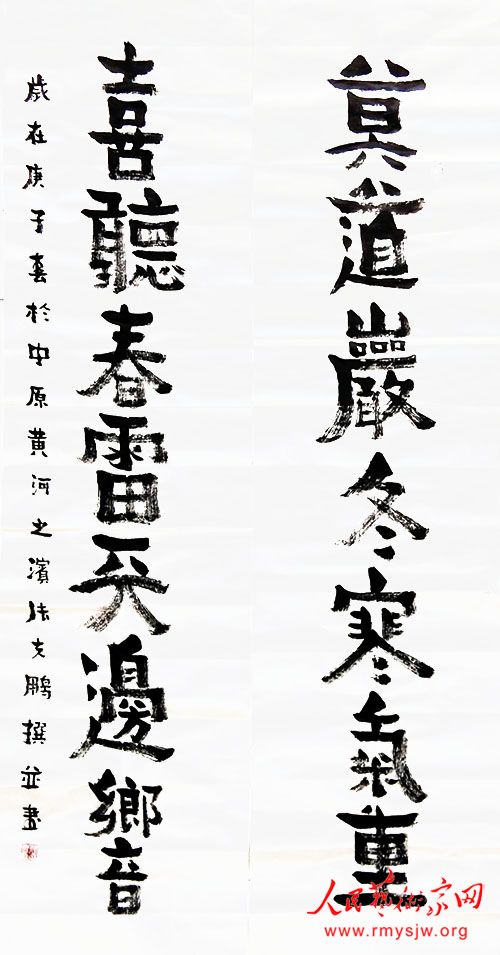 莫道嚴冬寒氣重
喜聽春雷天邊響
歲在庚子春於中原黄河之濱鵬撰並書
人民藝術家网
www.rmysjw.org